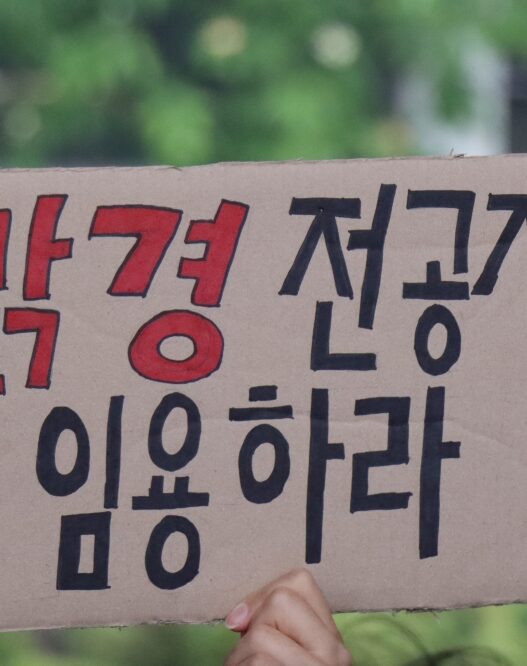 경 전공
임용하라